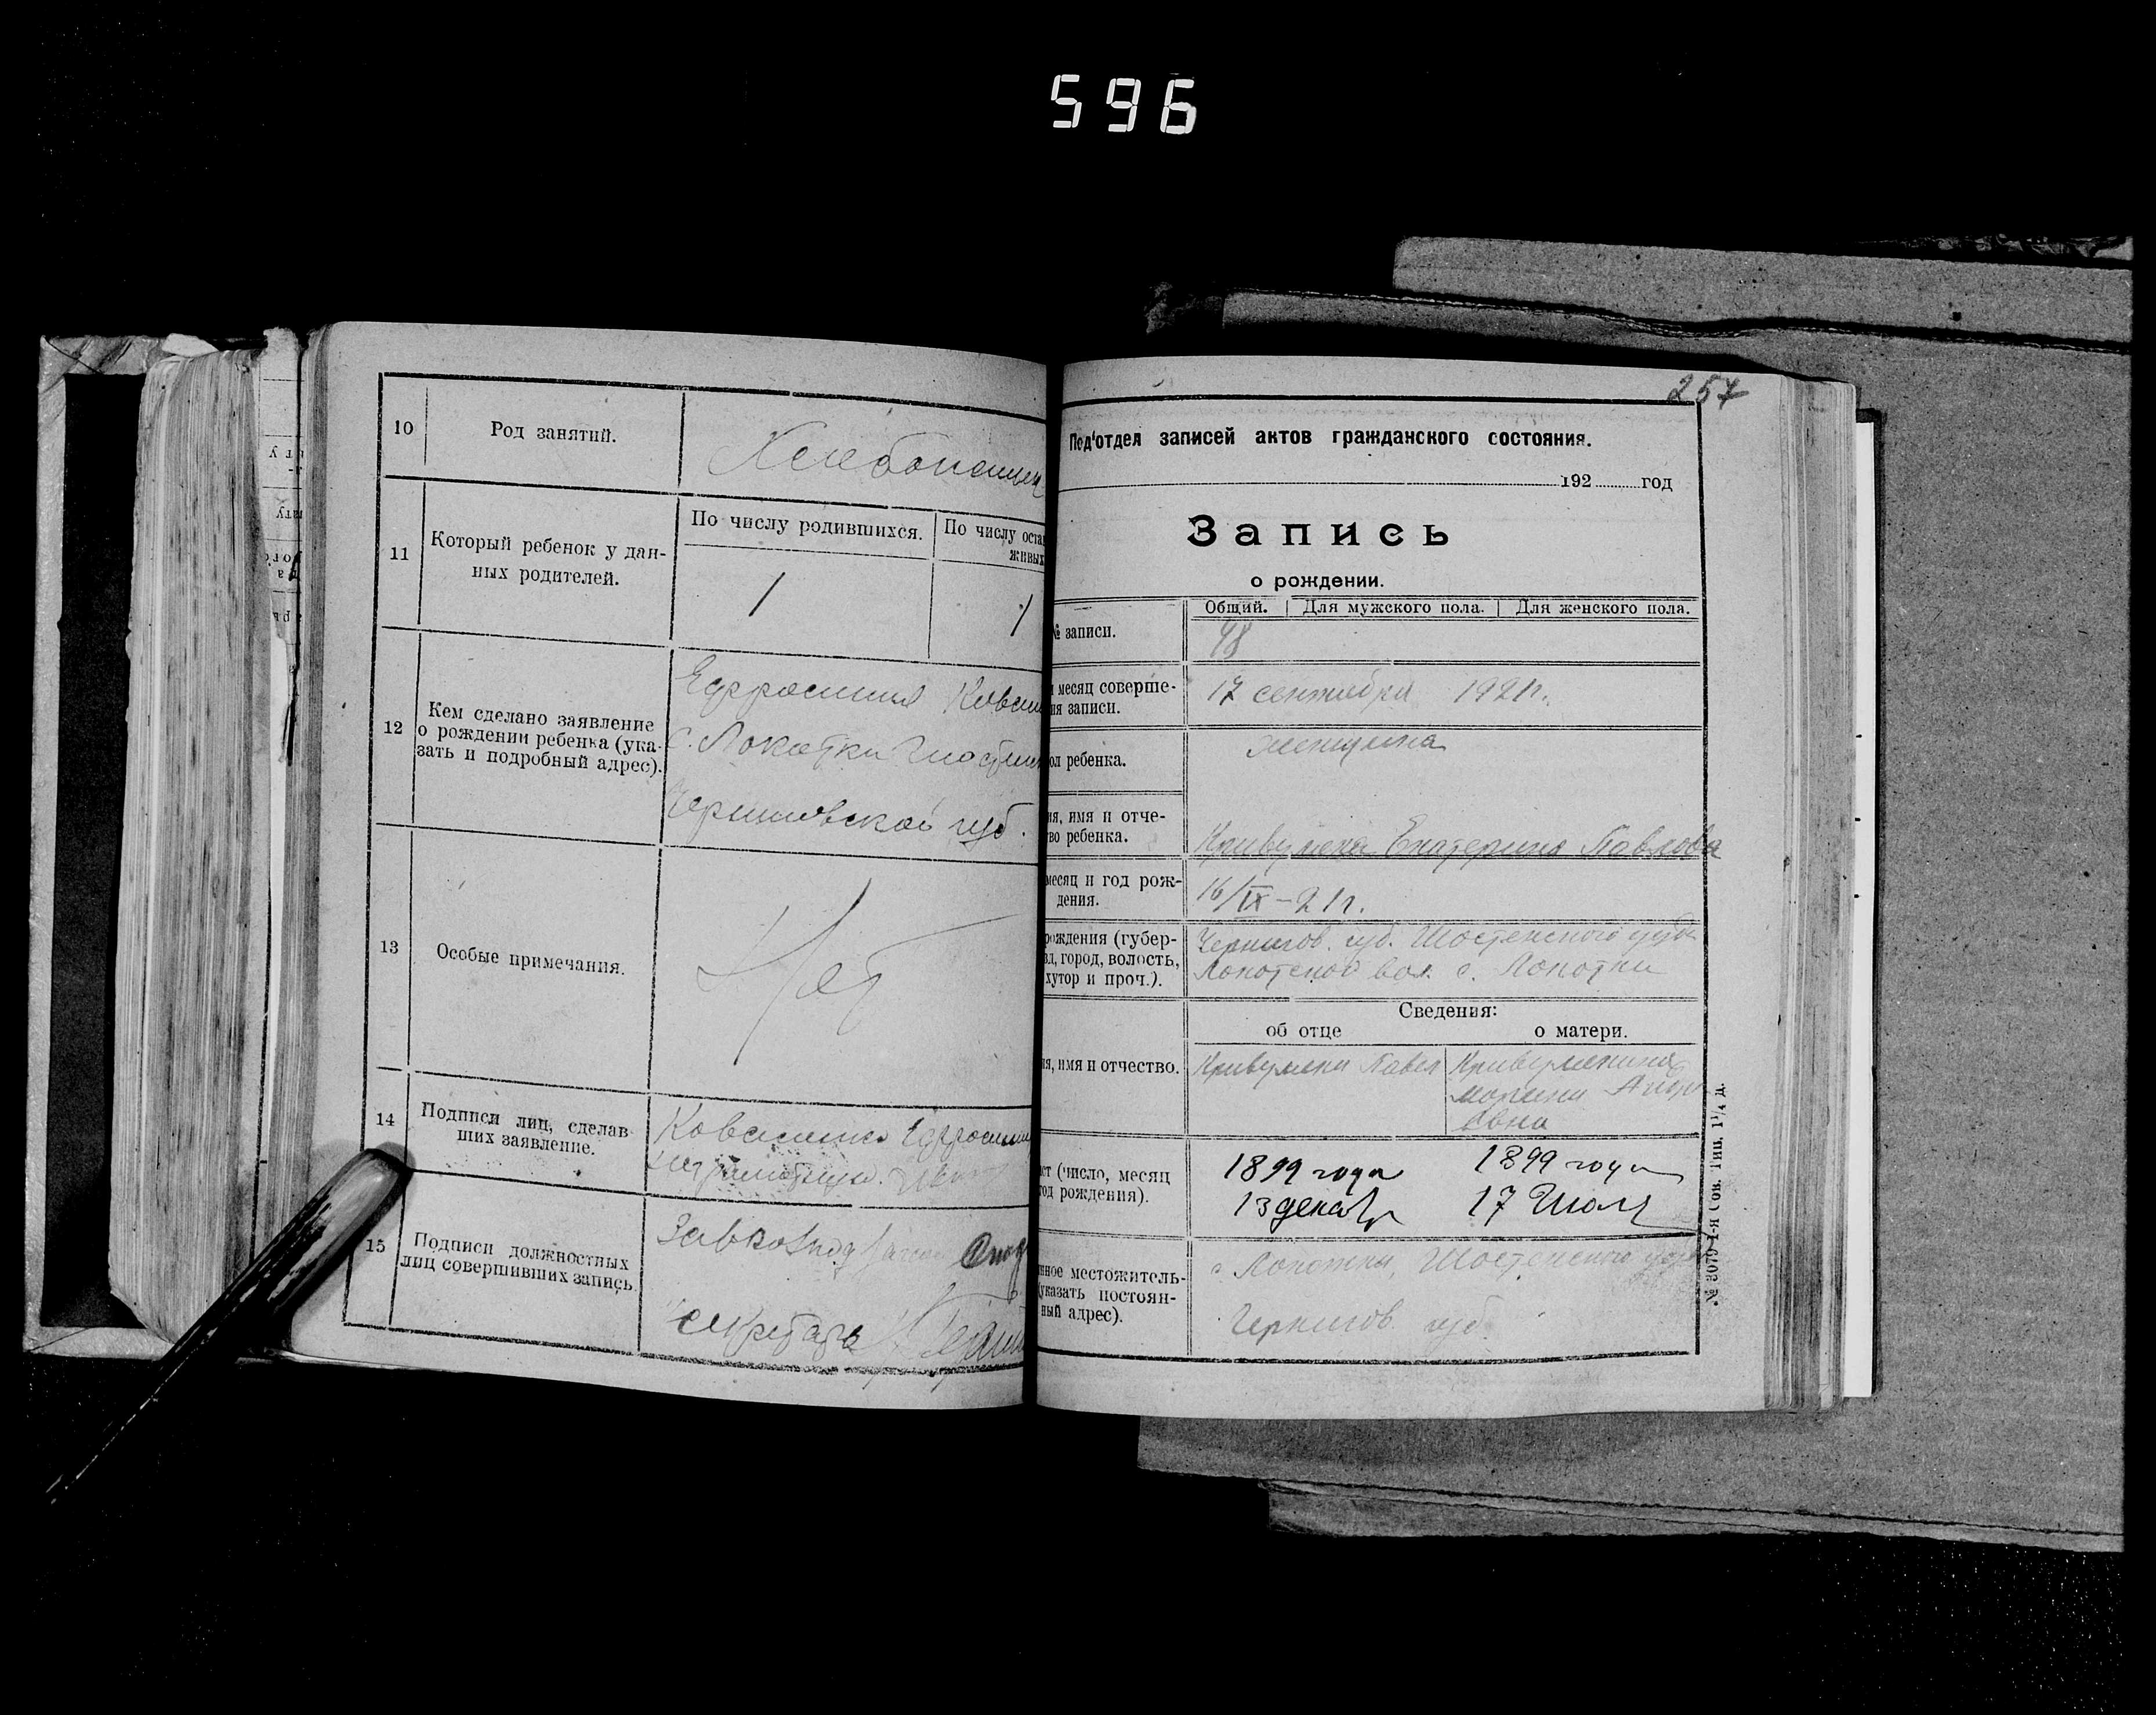 596
10
Род занятий.
Хлебопашец
11
Который ребенок у дан-
ных родителей.
По числу родившихся.
По числу оста
живых
1
1
12
Кем сделано заявление
о рождении ребенка (ука-
зать и подробный адрес).
Ефросиния
с. Локотки
Черниговской губ.
13
Особые примечания.
Нет
14
Подписи лиц, сделав
ших заявление.
15
Подписи должностных
лиц совершивших запись
секретарь
257
Под'отдел записей актов гражданского состояния.
192 год
Запись
о рождении.
Общий. Для мужского пола. Для женского пола.
№ записи.
98
месяц соверше-
ия записи.
17 сентября 1921 г.
ол ребенка.
женщина
ия, имя и отче-
во ребенка.
Екатерина Павлова
месяц и год рож-
дения.
16/IX-21г.
рождения (губер-
зд, город, волость,
хутор и проч.).
Чернигов. губ. Шостенского
вол. с. Локотки
Сведения:
об отце
о матери.
ия, имя и отчество.
Павел
ст (число, месяц
год рождения).
1899 года
13 декабр
1899 года
17 Июля
нное местожитель-
указать постоян-
ный адрес).
с Локотки, Шостенского
Чернигов губ.
№ 3079 1-я Сов. Тип. 1¼ д.